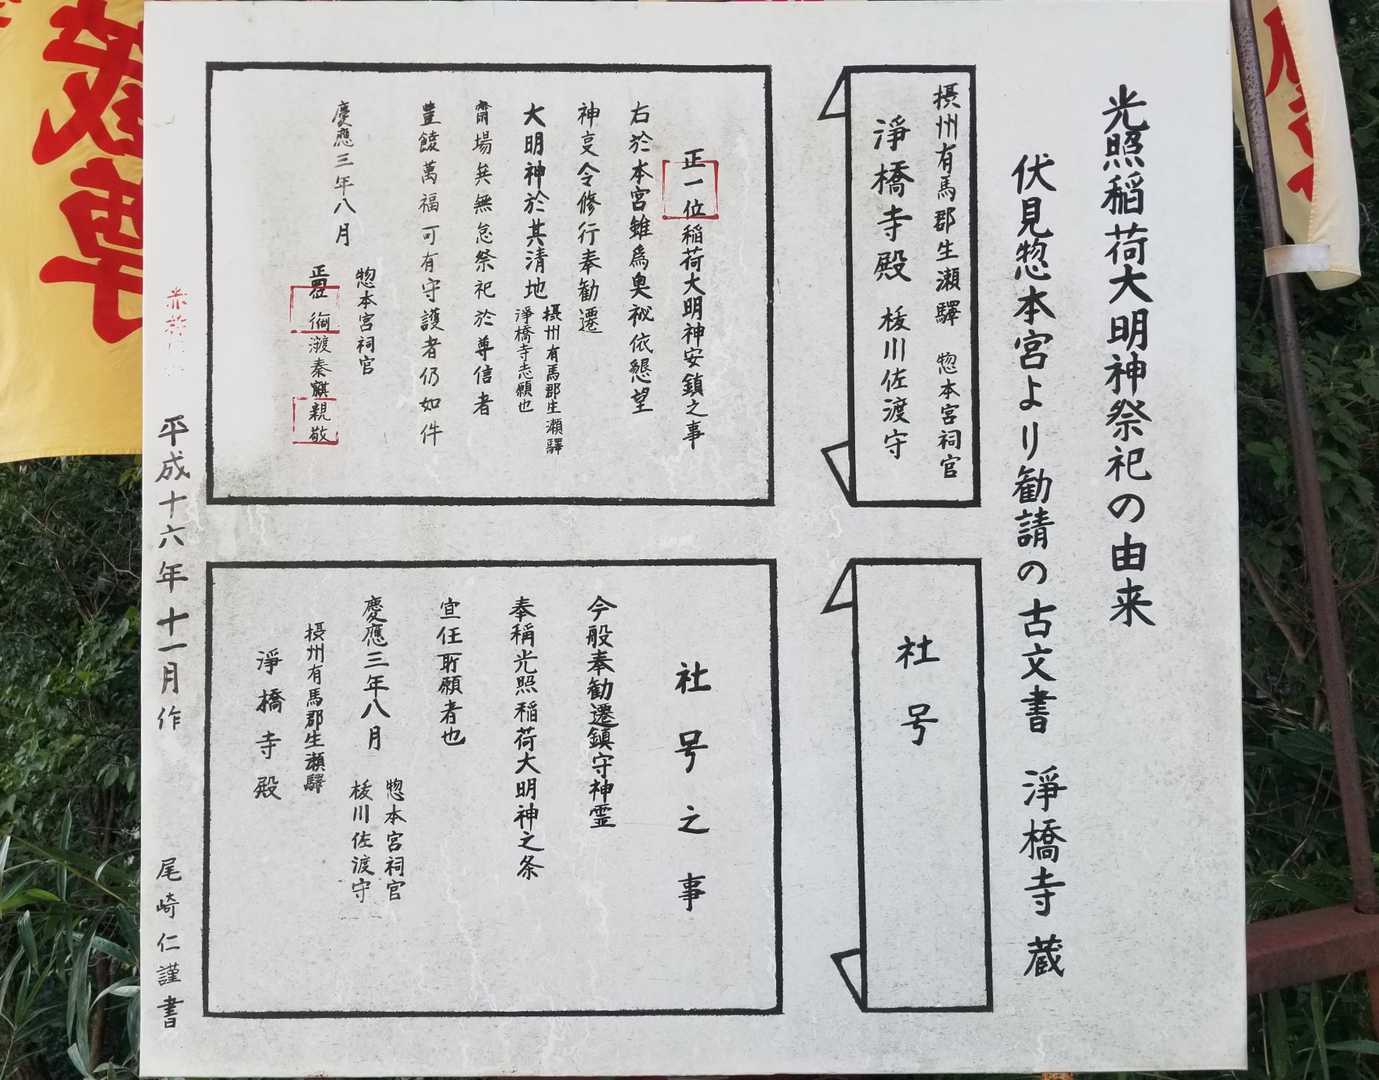 光照稲荷大明神祭祀の由来
伏見惣本宮より勧請の古文書 淨橋寺蔵
摂州有馬郡生瀬驛 惣本宮祠官
淨橋寺殿 𣘺川佐渡守
正一位稲荷大明神安鎮之事
右於本宮雖為奥祕依懇望
神㕝令修行奉勧遷
大明神於其清地
摂州有馬郡生瀬驛
淨橋寺志願也
齋場㒵無怠祭祀於尊信者
豊饒萬福可有守護者仍如件
慶應三年八月
惣本宮祠官
秦
親敬
社号
社号之事
今般奉勧遷鎮守神霊
奉稱光照稲荷大明神之条
宣任所願者也
慶應三年八月
惣本宮祠官
川佐渡守
摂州有馬郡生瀬驛
淨橋寺殿
平成十六年十一月作 尾崎仁謹書
尊